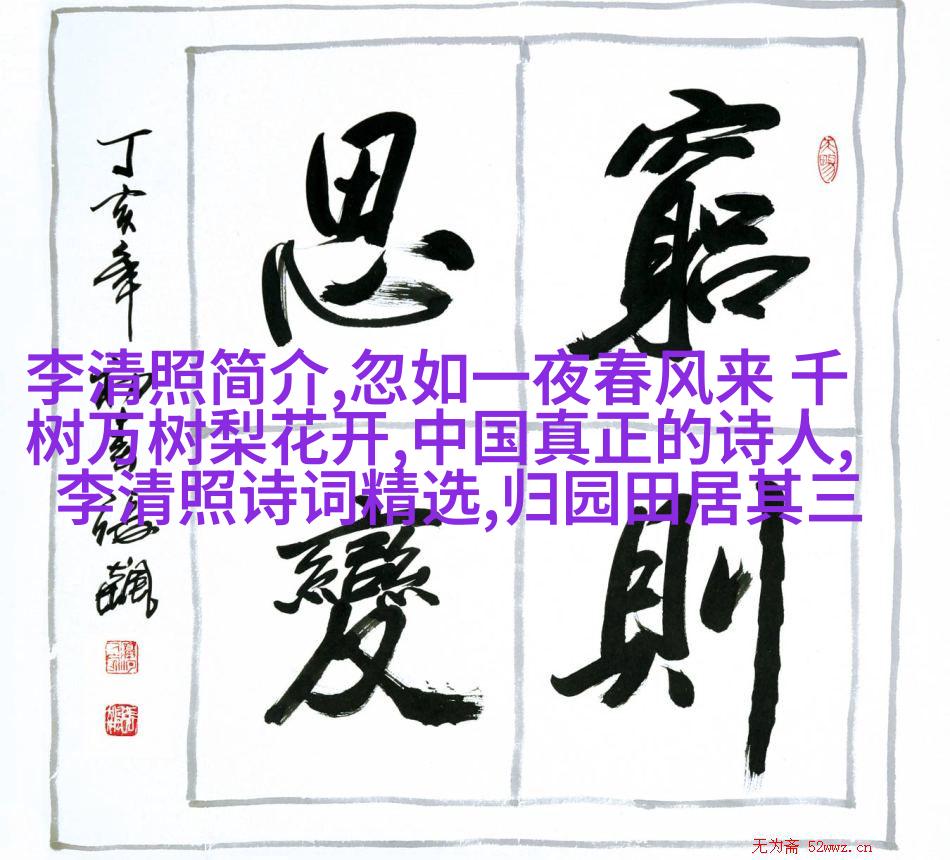 窮則
思變
丁亥年
李清照简介,忽如一夜春风来 千
树万树梨花开,中国真正的诗人,
李清照诗词精选,归园田居其三
无为斋 52wwz.cn